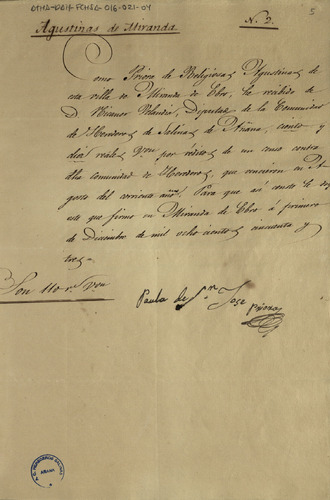 ATHA-DAH-FCHSG-016-021-04
5
Agustinas de Miranda
N. 2.
Como Priora de Religiosas Agustinas de
esta villa de Miranda de Ebro, he recibido de
D. Diputado de la Comunidad
de Herederos de Salinas de Añana, ciento y
diez reales Von por réditos de un censo contra
dha comunidad de Herederos, que vencieron en Agosto
del corriente año. Para que asi conste le doy
este que firmo en Miranda de Ebro á primero
de Diciembre de mil ocho cientos cincuenta y
tres
Son 110 rs. Von
Paula de Sn. Jose
Priora
AÑANA